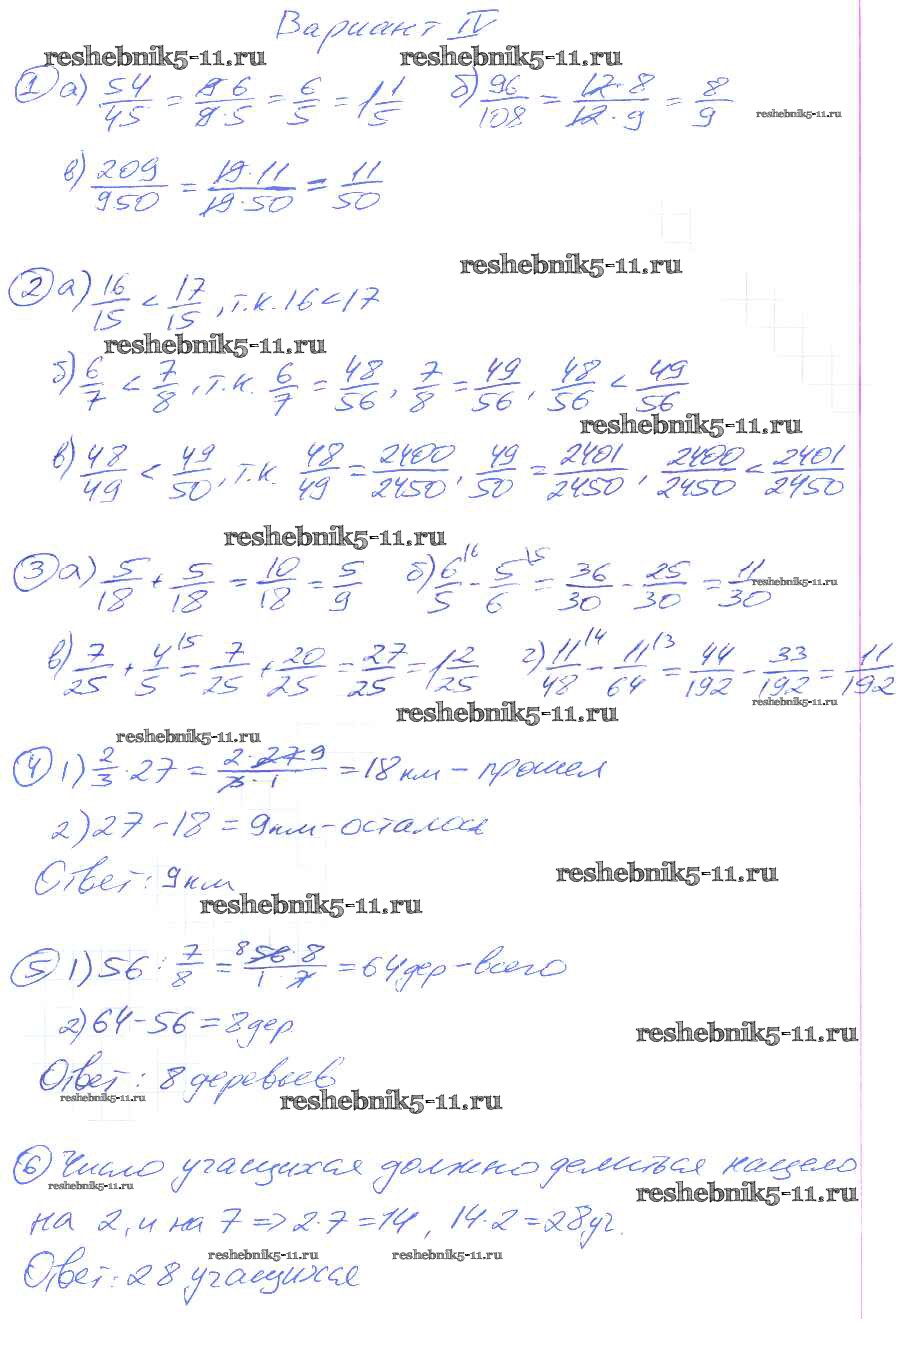 Вариант IV
reshebnik5-11.ru reshebnik5-11.ru
1 а) 54/45 = 9·6/9·5 = 6/5 = 1 1/5 б) 96/108 = 12·8/12·9 = 8/9
reshebnik5-11.ru
в) 209/950 = 19·11/19·50 = 11/50
reshebnik5-11.ru
2 а) 16/15 < 17/15, т.к. 16 < 17
reshebnik5-11.ru
б) 6/7 < 7/8, т.к. 6/7 = 48/56, 7/8 = 49/56, 48/56 < 49/56
reshebnik5-11.ru
в) 48/49 < 49/50, т.к. 48/49 = 2400/2450, 49/50 = 2401/2450, 2400/2450 < 2401/2450
reshebnik5-11.ru
3 а) 5/18 + 5/18 = 10/18 = 5/9 б) 6/5 \6 - 5/6 \5 = 36/30 - 25/30 = 11/30
reshebnik5-11.ru
в) 7/25 + 4/5 \5 = 7/25 + 20/25 = 27/25 = 1 2/25 г) 11/48 \4 - 11/64 \3 = 44/192 - 33/192 = 11/192
reshebnik5-11.ru
reshebnik5-11.ru
reshebnik5-11.ru
4 1) 2/3 · 27 = 2·27 9/3·1 = 18 км - прошел
2) 27 - 18 = 9 км - осталось
Ответ: 9 км
reshebnik5-11.ru
reshebnik5-11.ru
5 1) 56 : 7/8 = 8 56·8/1 7 = 64 дер - всего
2) 64 - 56 = 8 дер
reshebnik5-11.ru
Ответ: 8 деревьев
reshebnik5-11.ru
reshebnik5-11.ru
6 Число учащихся должно делиться нацело
reshebnik5-11.ru
reshebnik5-11.ru
на 2, и на 7 => 2·7 = 14, 14·2 = 28 уч.
reshebnik5-11.ru reshebnik5-11.ru
Ответ: 28 учащихся